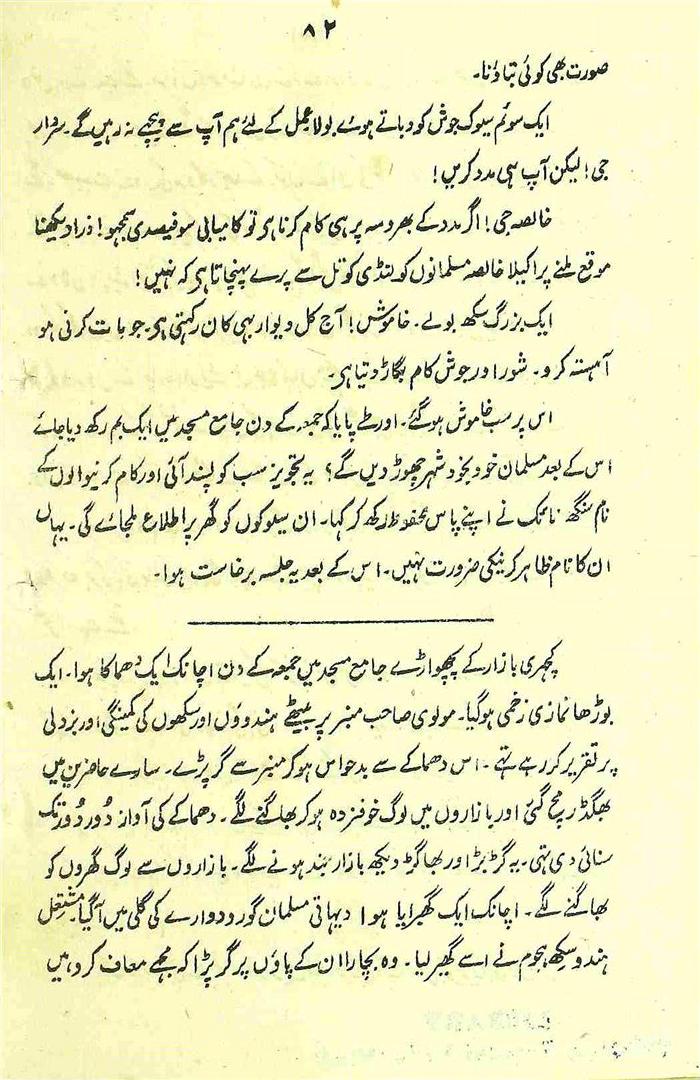 ۸۲
صورت بھی کوئی بتاؤنا۔
ایک سوئم سیوک جوش کو دباتے ہوئے بولا عمل کے لئے ہم آپ سے پیچھے نہ رہیں گے۔ سردار
جی! لیکن آپ ہی مدد کریں!
خالصہ جی! اگر مدد کے بھروسہ پر ہی کام کرنا ہر تو کامیابی سو فیصدی سمجھو! ذرا دیکھنا
موقع ملنے پر اکیلا خالصہ مسلمانوں کو لنڈی کوتل سے پرے پہنچاتا ہر کہ نہیں!
ایک بزرگ سکھ بولے۔ خاموش! آج کل دیوار بہی کان رکہتی ہر۔ جو بات کرنی ہو
آہستہ کرو۔ شور اور جوش کام بگاڑ دیتا ہر۔
اس پر سب خاموش ہو گئے۔ اور طے پایا کہ جمعہ کے دن جامع مسجد میں ایک بم رکھ دیا جائے
اس کے بعد مسلمان خود بخود شہر چھوڑ دیں گے؟ یہ تجویز سب کو پسند آئی اور کام کرنیوالوں کے
نام سنگھ نائک نے اپنے پاس محفوظ رکھ کر کہا۔ ان سیوکوں کو گھر پر اطلاع ملجائے گی۔ یہاں
ان کا نام ظاہر کرنیکی ضرورت نہیں۔ اس کے بعد یہ جلسہ برخاست ہوا۔
کچہری بازار کے پچھواڑے جامع مسجد میں جمعہ کے دن اچانک ایک دھماکا ہوا۔ ایک
بوڑھا نمازی زخمی ہو گیا۔ مولوی صاحب منبر پر بیٹھے ہندوؤں اور سکھوں کی کمینگی اور بزدلی
پر تقریر کر رہے تھے۔ اس دھماکے سے بدحواس ہو کر منبر سے گر پڑے۔ سارے حاضرین میں
بھگڈر مچ گئی اور بازاروں میں لوگ خوفزدہ ہو کر بھاگنے لگے۔ دھماکے کی آواز دُور دُور تک
سنائی دی تہی۔ یہ گڑبڑ اور بھاگڑ دیکھ بازار بند ہونے لگے۔ بازاروں سے لوگ گھروں کو
بھاگنے لگے۔ اچانک ایک گھبرایا ہوا دیہاتی مسلمان گورودوارے کی گلی میں آ گیا۔ مشتعل
ہندو سکھ ہجوم نے اسے گھیر لیا۔ وہ بچارا ان کے پاؤں پر گر پڑا کہ مجھے معاف کردہ میں